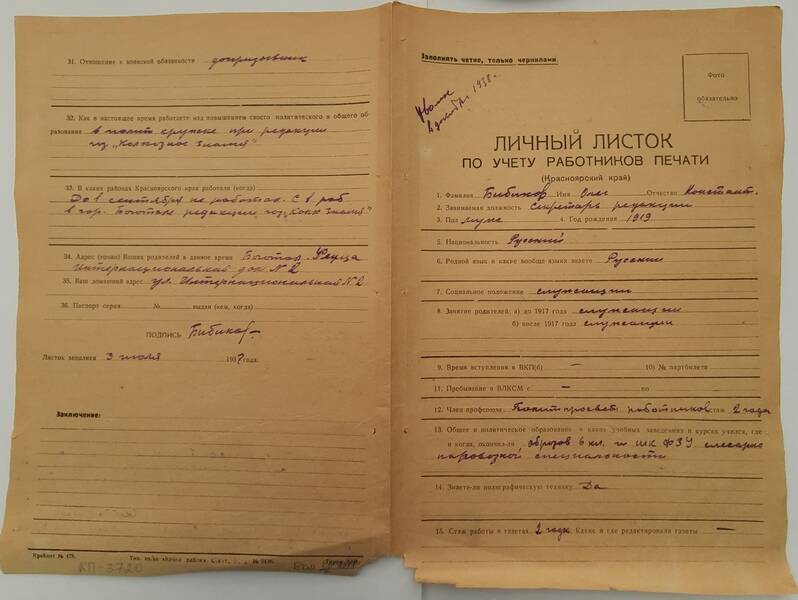 31. Отношение к воинской обязанности допризывник
32. Как в настоящее время работаете над повышением своего политического и общего об
разования в полит кружке при редакции
газ. „Колхозное знамя"
33. В каких районах Красноярского края работали (когда)
До 1 сентября не работал. С 1 раб
в гор. Боготол редакции газ. „Колх знамя"
34. Адрес (точно) Ваших родителей в данное время Боготол. Улица
Интернациональная дом № 2
35. Ваш домашний адрес ул. Интернациональная № 2
36. Паспорт серия № выдан (кем, когда)
ПОДПИСЬ Бибиков
Листок заполнен 3 июля 1937 года.
Заключение:
Крайлит № 478.
КП-3720
Заполнять четко, только чернилами.
Фото
обязательно
1938 г.
ЛИЧНЫЙ ЛИСТОК
ПО УЧЕТУ РАБОТНИКОВ ПЕЧАТИ
(Красноярский край)
1. Фамилия Бибиков Имя Олег Отчество Констант.
2. Занимаемая должность секретарь редакции
3. Пол муж 4. Год рождения 1919
5. Национальность Русский
6. Родной язык и какие вообще языки знаете Русский
7. Социальное положение служащий
8. Занятие родителей: а) до 1917 года служащии
б) после 1917 года служащии
9. Время вступления в ВКП(б) – 10) № партбилета
11. Пребывание в ВЛКСМ с – по
12. Член профсоюза Политпросвет работников стаж 2 года
13. Общее и политическое образование в каких учебных заведениях и курсах учился, где
и когда, окончил-ли образов 6 кл. и шк ФЗУ слесарно
паровозной специальности
14. Знаете-ли полиграфическую технику Да
15. Стаж работы в газетах 2 года Какие и где редактировали газеты –